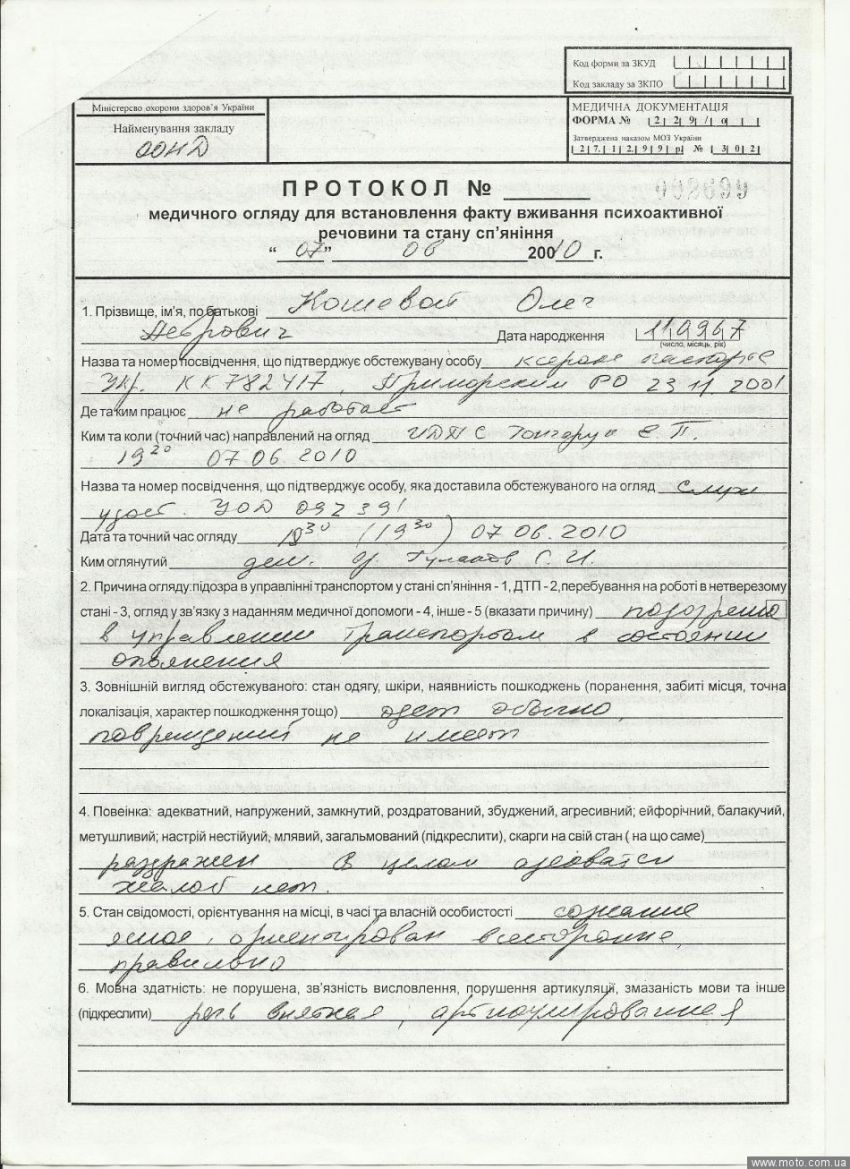 Код форми за ЗКУД
Код закладу за ЗКПО
Міністерсво охорони здоров'я України
Найменування закладу
ООНД
МЕДИЧНА ДОКУМЕНТАЦІЯ
ФОРМА № 2 2 9 / о
Затверджена наказом МОЗ України
2 7. 1 2. 9 9 р. № 3 0 2
ПРОТОКОЛ №
медичного огляду для встановлення факту вживання психоактивної
речовини та стану сп'яніння
“ 07 ” 06 20010 г.
1. Прізвище, ім'я, по батькові Кошевой Олег
Петрович Дата народження 110967
(число, місяць, рік)
Назва та номер посвідчення, що підтверджує обстежувану особу ксерокс паспорта
Укр. КК782417, Приморским РО 23 11. 2001
Де та ким працює не работает
Ким та коли (точний час) направлений на огляд ИДПС Гончарук Е.П.
19 20 07 06. 2010
Назва та номер посвідчення, що підтверджує особу, яка доставила обстежуваного на огляд служ
удост. УОД 092391
Дата та точний час огляду 19 30 (19 30) 07 06. 2010
Ким оглянутий С. И.
2. Причина огляду: підозра в управлінні транспортом у стані сп'яніння - 1, ДТП - 2,перебування на роботі в нетверезому
стані - 3, огляд у зв'язку з наданням медичної допомоги - 4, інше - 5 (вказати причину) подозрение
в управлении транспортом в состоянии
опьянения
3. Зовнішній вигляд обстежуваного: стан одягу, шкіри, наявнність пошкоджень (поранення, забиті місця, точна
локалізація, характер пошкодження тощо) одет обычно,
повреждений не имеет
4. Повеінка: адекватний, напружений, замкнутий, роздратований, збуджений, агресивний; ейфорічний, балакучий,
метушливий; настрій нестійуий, млявий, загальмований (підкреслити), скарги на свій стан ( на що саме)
раздражен в целом адекватен
жалоб нет.
5. Стан свідомості, орієнтування на місці, в часі та власній особистості сознание
ясное, ориентирован всесторонне,
правильно
6. Мовна здатність: не порушена, зв'язність висловлення, порушення артикуляції, змазаність мови та інше
(підкреслити) речь внятная, артикулированная
www.moto.com.ua